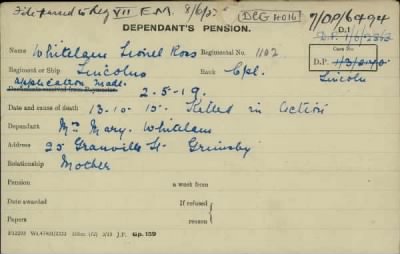 File passed to Reg VII E.M. 8/6/32 DCG HO16 7/DP/6494
DEPENDANT'S PENSION.
D.1
Name Whitelam Lionel Ross Regimental No. 1102
Case No.
Regiment or Ship Lincolns Rank Cpl. D.P.
Application made 2.5.19. Lincoln
Date and cause of death 13.10.15. Killed in Action
Dependant Mrs Mary. Whitelam
Address 25 Granville St Grimsby
Relationship Mother
Pension a week from
Date awarded If refused
Papers reason
Gp. 159